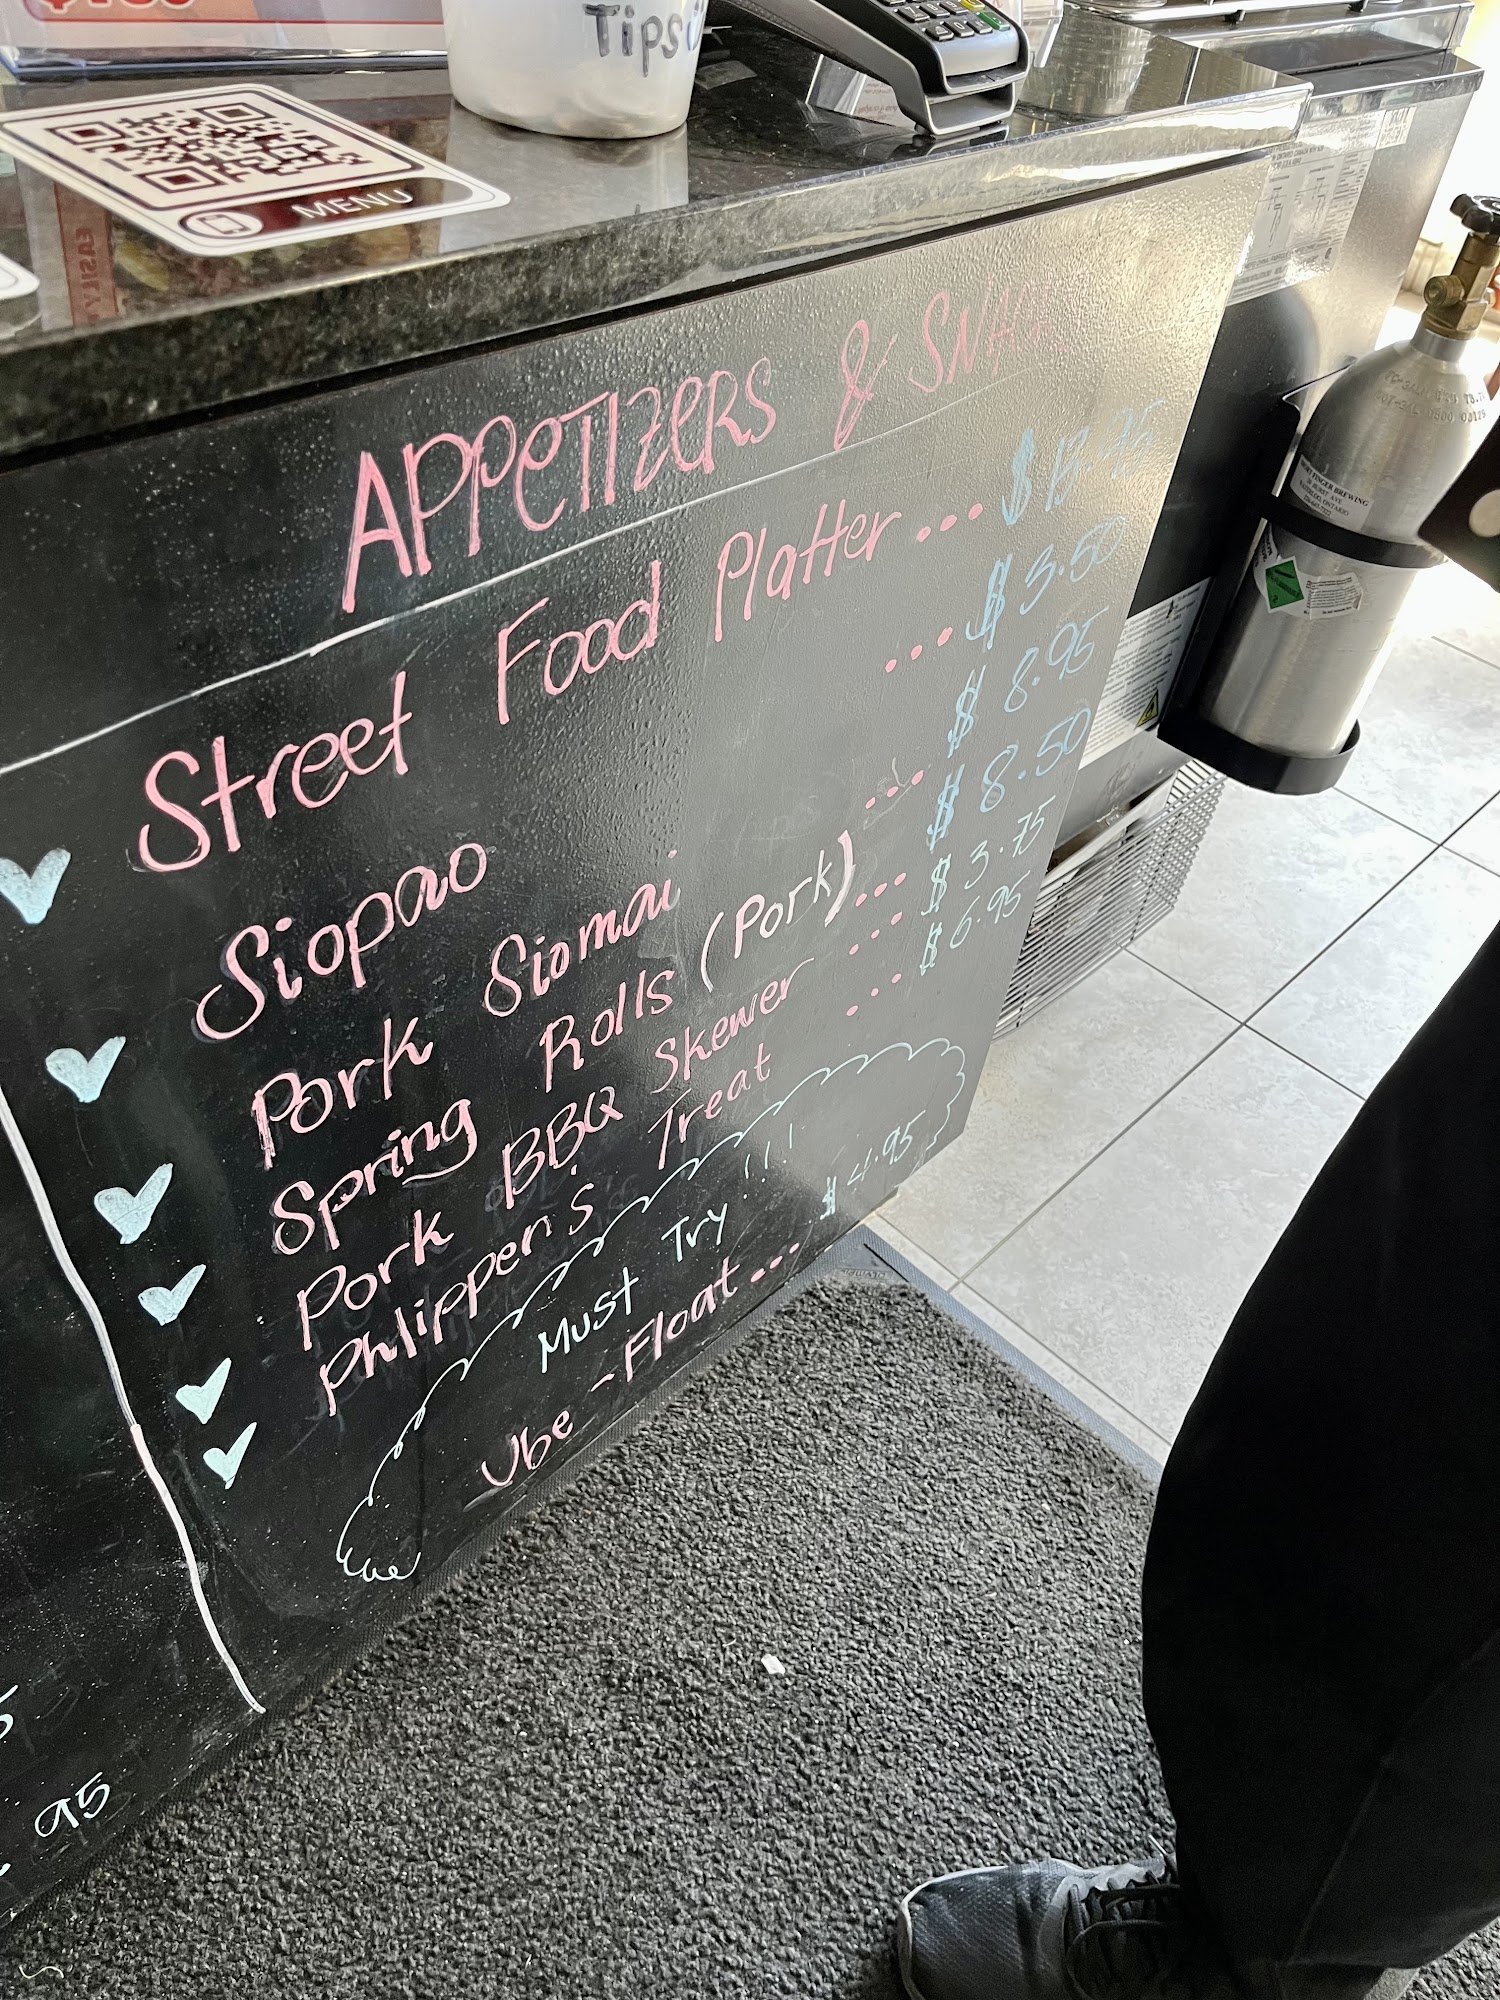 Tips
MENU
EASILY
APPETIZERS & SNA
Street Food Platter ... $
Siopao ... $ 3.50
Pork Siomai ... $ 8.95
Spring Rolls (Pork) ... $ 8.50
Pork BBQ Skewer ... $ 3.75
Phlippen's Treat ... $ 6.95
Must Try!!!
Ube - Float ... $ 4.95
95